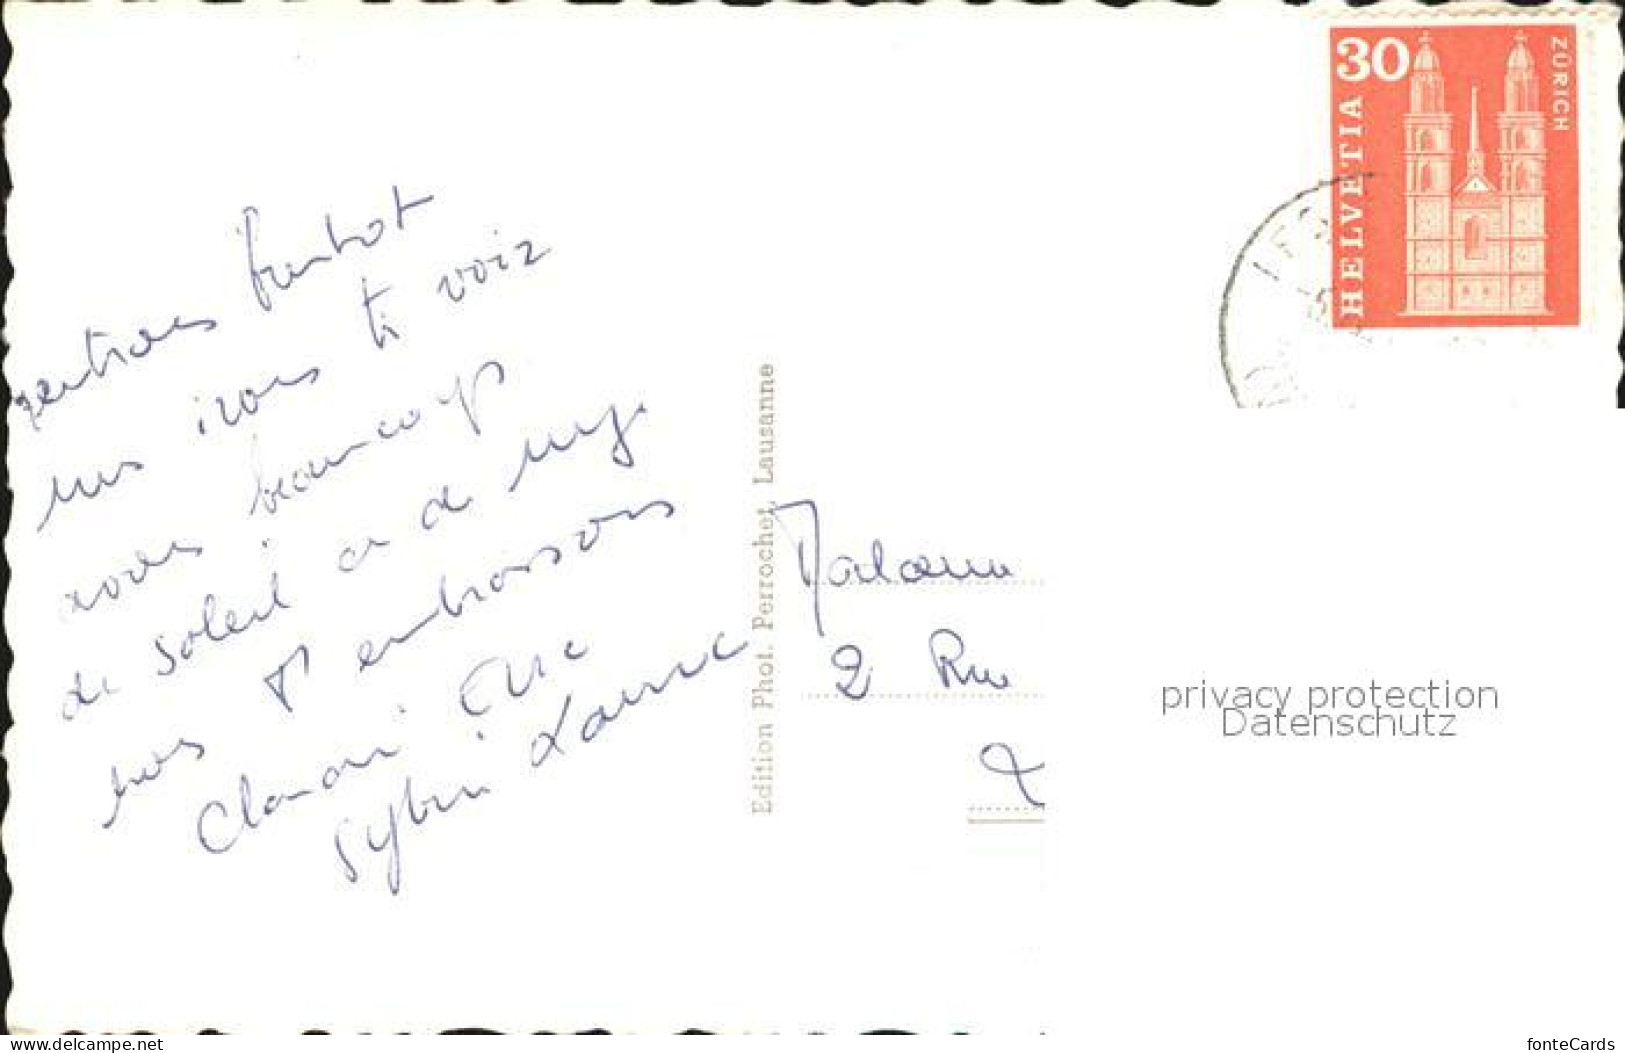 rentrons bientot
nous irons ti voir
avons beaucoup
de soleil et de neige.
nous t'embrassons
Eric
Sylvie Laurence
Edition Phot. Perrochet, Lausanne
30
HELVETIA
ZÜRICH
Madame
2 Rue
privacy protection
Datenschutz
www.delcampe.net
fonteCards